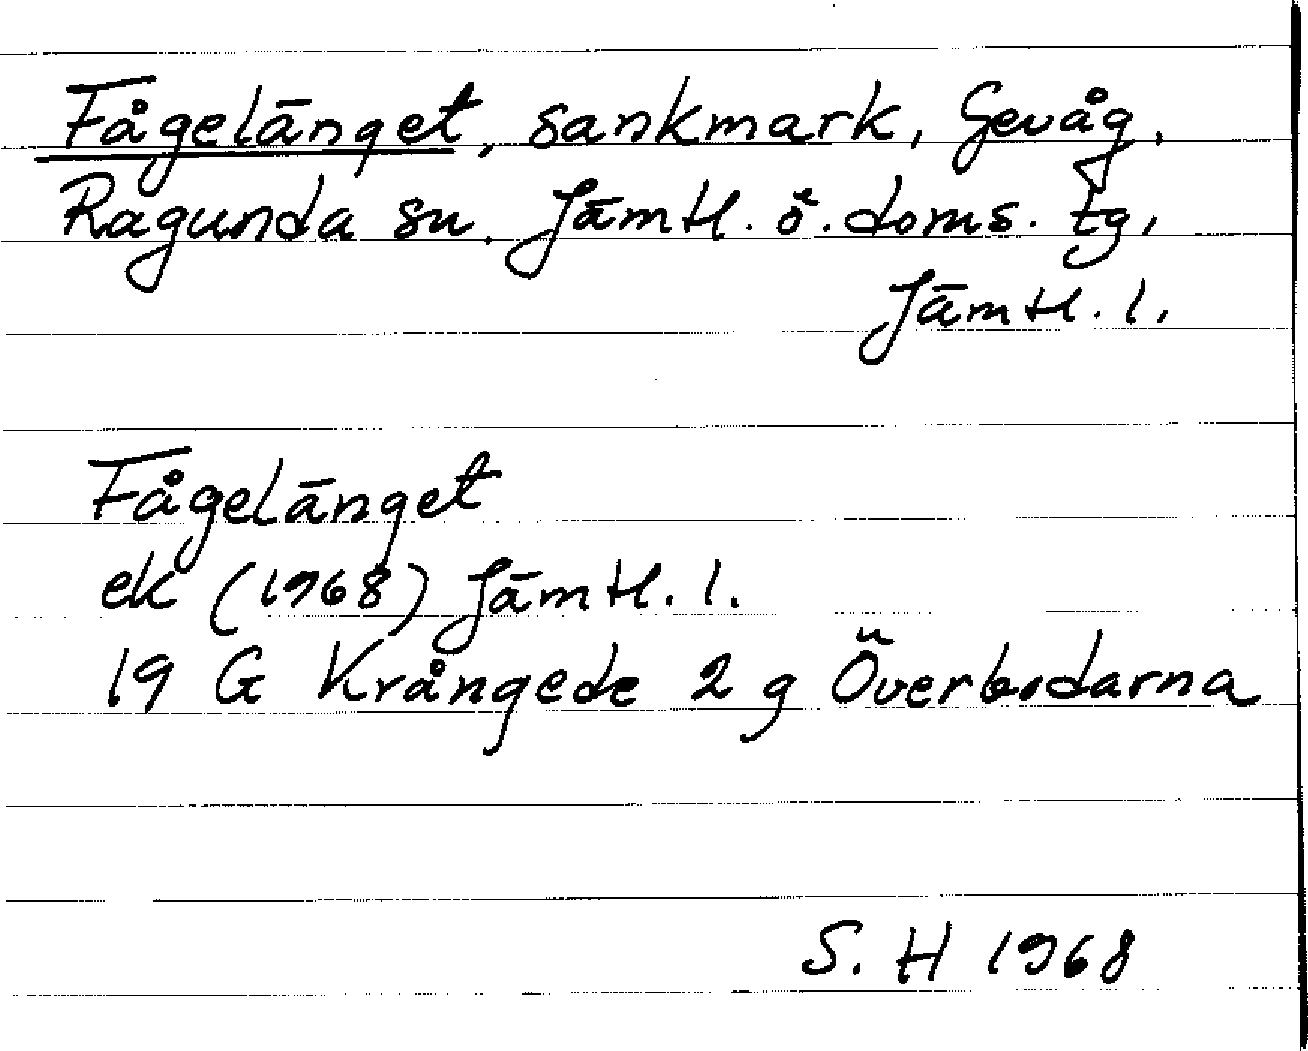 Fågelänget, sankmark, Gevåg,
Ragunda sn. Jämtl. ö. doms. tg,
Jämtl. l.
Fågelänget
ek (1968) Jämtl. l.
19 G Krångede 2 g Överbodarna
S. H 1968